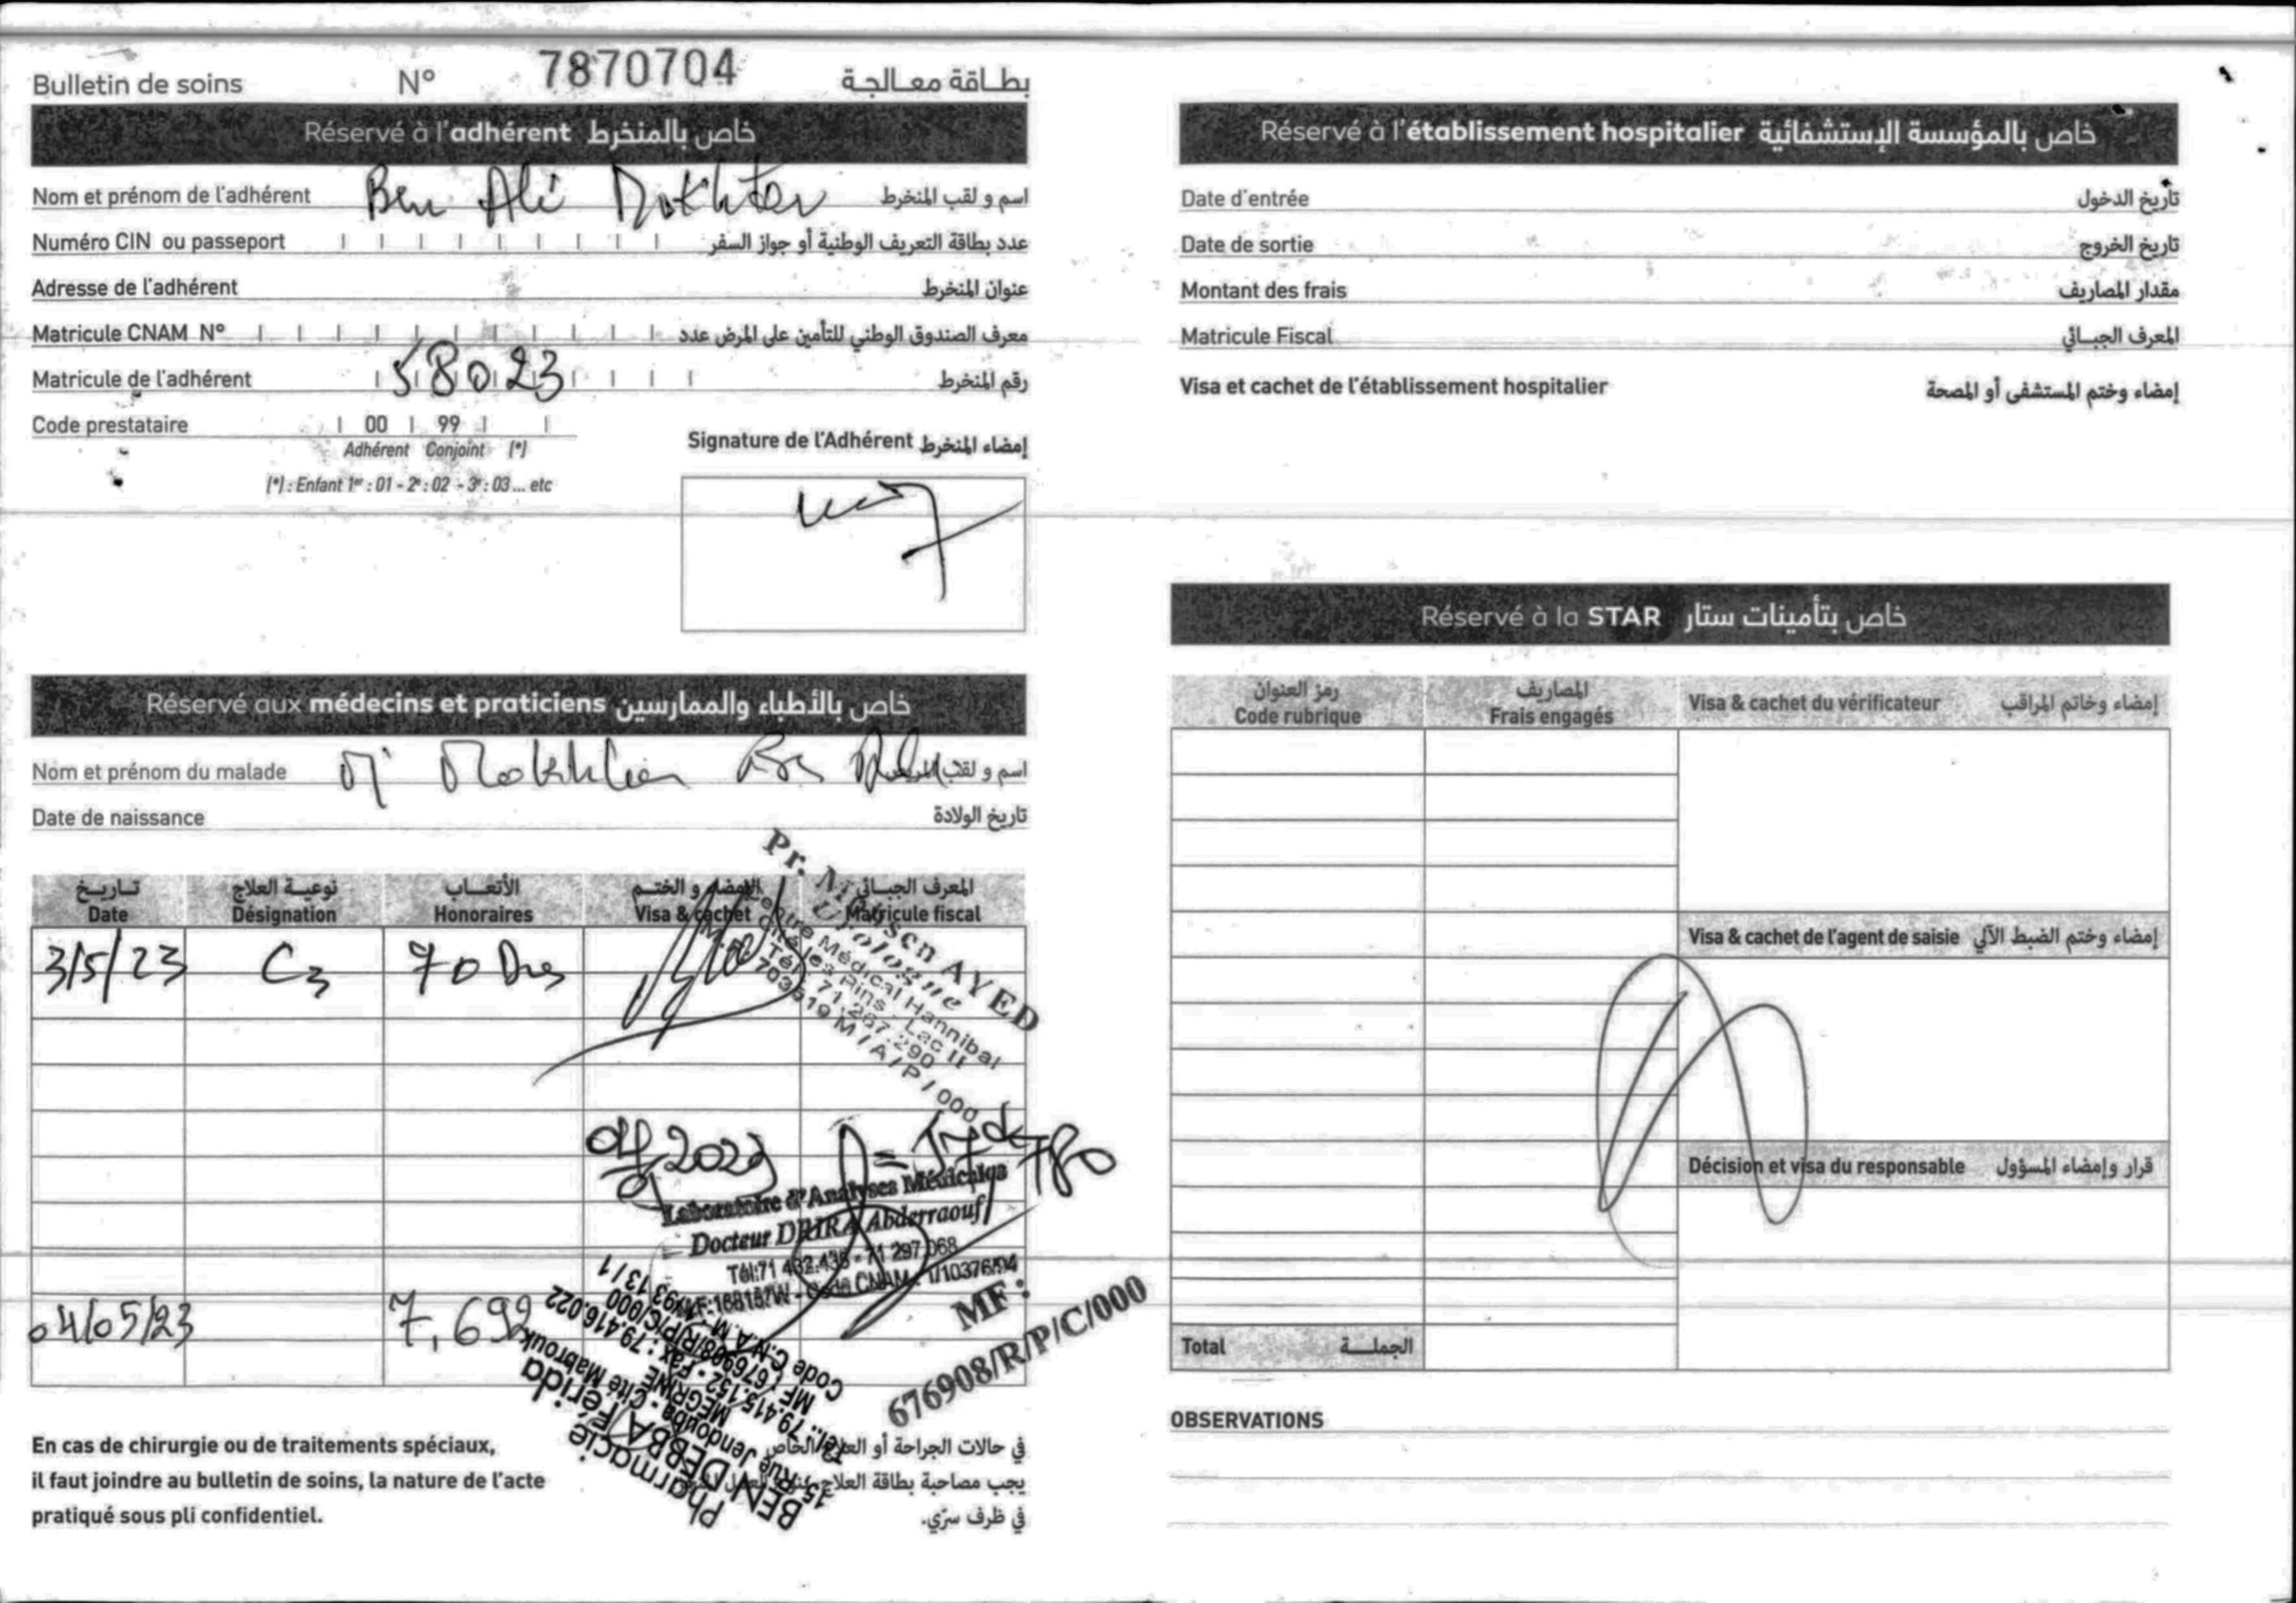 Bulletin de soins N° 7870704 بطاقة معالجة
Réservé à l'adhérent خاص بالمنخرط
Nom et prénom de l'adhérent Ben Ali Mokhtar اسم و لقب المنخرط
Numéro CIN ou passeport عدد بطاقة التعريف الوطنية أو جواز السفر
Adresse de l'adhérent عنوان المنخرط
Matricule CNAM N° معرف الصندوق الوطني للتأمين على المرض عدد
Matricule de l'adhérent 58023 رقم المنخرط
Code prestataire 00 99
Adhérent Conjoint (*)
(*) : Enfant 1er : 01 - 2e : 02 - 3e : 03 ... etc
Signature de l'Adhérent إمضاء المنخرط
Réservé aux médecins et praticiens خاص بالأطباء والممارسين
Nom et prénom du malade Mr Mokhtar Ben Ali اسم و لقب المريض
Date de naissance تاريخ الولادة
تاريخ نوعية العلاج الأتعاب الإمضاء و الختم المعرف الجبائي
Date Désignation Honoraires Visa & cachet Matricule fiscal
3/5/23 C3 70 Dns
Pr. Mohsen AYED
Urologue
Centre Médical Hannibal
Cité les Pins - Lac II
Tél: 71.267.290
703519 M/A/P/000
2023 = 17d780
Laboratoire d'Analyses Médicales
Docteur DRIRA Abderraouf
Tél:71 432.436 - 71 297 068
Code CNAM: 1/10376/94
04/05/23 7,692
MF:
676908/R/P/C/000
Pharmacie
BEN DEBBA Férida
15, Rue Jendouba - Cité Mabrouk
MEGRINE
Tél.: 79.415.152 - Fax : 79.416.022
MF : 676908/R/P/C/000
Code C.N.A.M
En cas de chirurgie ou de traitements spéciaux,
il faut joindre au bulletin de soins, la nature de l'acte
pratiqué sous pli confidentiel.
في حالات الجراحة أو العلاج الخاص
يجب مصاحبة بطاقة العلاج
في ظرف سرّي.
Réservé à l'établissement hospitalier خاص بالمؤسسة الإستشفائية
Date d'entrée تاريخ الدخول
Date de sortie تاريخ الخروج
Montant des frais مقدار المصاريف
Matricule Fiscal المعرف الجبائي
Visa et cachet de l'établissement hospitalier إمضاء وختم المستشفى أو المصحة
Réservé à la STAR خاص بتأمينات ستار
رمز العنوان المصاريف
Code rubrique Frais engagés Visa & cachet du vérificateur إمضاء وخاتم المراقب
Visa & cachet de l'agent de saisie إمضاء وختم الضبط الآلي
Décision et visa du responsable قرار وإمضاء المسؤول
Total الجملة
OBSERVATIONS